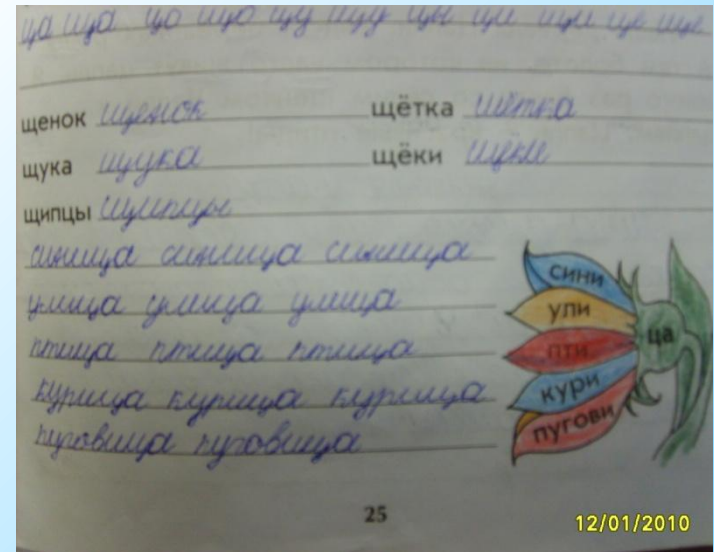 ца ща цо що цу щу цы ци щи це ще
щенок щенок щётка щётка
щука щука щёки щёки
щипцы щипцы
синица синица синица
улица улица улица
птица птица птица
курица курица курица
пуговица пуговица
сини
ули
пти
кури
пугови
ца
25
12/01/2010